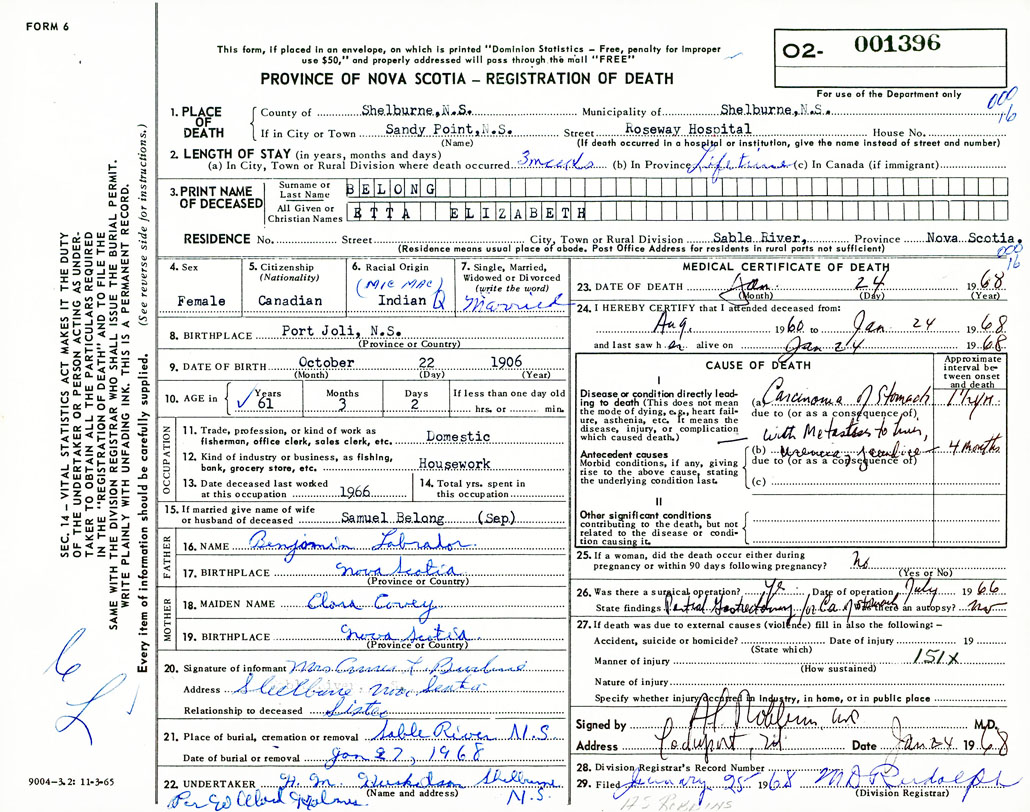 FORM 6
This form, if placed in an envelope, on which is printed "Dominion Statistics – Free, penalty for improper
use $50," and properly addressed will pass through the mail "FREE"
PROVINCE OF NOVA SCOTIA – REGISTRATION OF DEATH
O2- 001396
For use of the Department only
000
16
1. PLACE OF DEATH
County of Shelburne, N.S. Municipality of Shelburne, N.S.
If in City or Town Sandy Point, N.S. Street Roseway Hospital House No.
(Name) (If death occurred in a hospital or institution, give the name instead of street and number)
2. LENGTH OF STAY (in years, months and days)
(a) In City, Town or Rural Division where death occurred 3 (b) In Province Lifetime (c) In Canada (if immigrant)
3. PRINT NAME OF DECEASED
Surname or Last Name BELONG
All Given or Christian Names ETTA ELIZABETH
RESIDENCE No. Street City, Town or Rural Division Sable River, Province Nova Scotia.
(Residence means usual place of abode. Post Office Address for residents in rural parts not sufficient)
000
16
4. Sex
Female
5. Citizenship
(Nationality)
Canadian
6. Racial Origin
(MIC MAC)
Indian
7. Single, Married, Widowed or Divorced
(write the word)
Married
8. BIRTHPLACE Port Joli, N.S.
(Province or Country)
9. DATE OF BIRTH October 22 1906
(Month) (Day) (Year)
10. AGE in
Years 61
Months 3
Days 2
If less than one day old
hrs. or min.
OCCUPATION
11. Trade, profession, or kind of work as
fisherman, office clerk, sales clerk, etc. Domestic
12. Kind of industry or business, as fishing,
bank, grocery store, etc. Housework
13. Date deceased last worked
at this occupation 1966
14. Total yrs. spent in
this occupation
15. If married give name of wife
or husband of deceased Samuel Belong (Sep)
FATHER
16. NAME Benjamin Labrador
17. BIRTHPLACE Nova Scotia
(Province or Country)
MOTHER
18. MAIDEN NAME Clara Covey
19. BIRTHPLACE Nova Scotia
(Province or Country)
20. Signature of informant Mrs
Address Shelburne Nova Scotia
Relationship to deceased Sister
21. Place of burial, cremation or removal Sable River N.S.
Date of burial or removal Jan 27, 1968
22. UNDERTAKER H. M. Shelburne
(Name and address) N.S.
Per
MEDICAL CERTIFICATE OF DEATH
23. DATE OF DEATH Jan 24 1968
(Month) (Day) (Year)
24. I HEREBY CERTIFY that I attended deceased from:
Aug. 1960 to Jan 24 1968
and last saw her alive on Jan 24 1968
CAUSE OF DEATH
Approximate interval between onset and death
I
Disease or condition directly leading
to death (This does not mean
the mode of dying, e.g., heart failure,
asthenia, etc. It means the
disease, injury, or complication
which caused death.)
(a) Carcinoma of Stomach
due to (or as a consequence of)
with Metastases to liver,
Antecedent causes
Morbid conditions, if any, giving
rise to the above cause, stating
the underlying condition last.
(b) jaundice 4 months
due to (or as a consequence of)
(c)
II
Other significant conditions
contributing to the death, but not
related to the disease or condition
causing it.
25. If a woman, did the death occur either during
pregnancy or within 90 days following pregnancy? No
(Yes or No)
26. Was there a surgical operation? Yes Date of operation July 1966
State findings Partial Gastrectomy for Ca of stomach Was there an autopsy? No
27. If death was due to external causes (violence) fill in also the following: –
Accident, suicide or homicide? Date of injury 19
(State which)
Manner of injury 151X
(How sustained)
Nature of injury
Specify whether injury occurred in Industry, in home, or in public place
Signed by M.D.
Address Lockeport, NS Date Jan 24 1968
28. Division Registrar's Record Number
29. Filed January 25 1968 M D Rudolph
(Division Registrar)
SEC. 14 – VITAL STATISTICS ACT MAKES IT THE DUTY
OF THE UNDERTAKER OR PERSON ACTING AS UNDER-
TAKER TO OBTAIN ALL THE PARTICULARS REQUIRED
IN THE "REGISTRATION OF DEATH" AND TO FILE THE
SAME WITH THE DIVISION REGISTRAR WHO SHALL ISSUE THE BURIAL PERMIT.
WRITE PLAINLY WITH UNFADING INK. THIS IS A PERMANENT RECORD.
Every item of information should be carefully supplied. (See reverse side for instructions.)
9004-3.2: 11-3-65